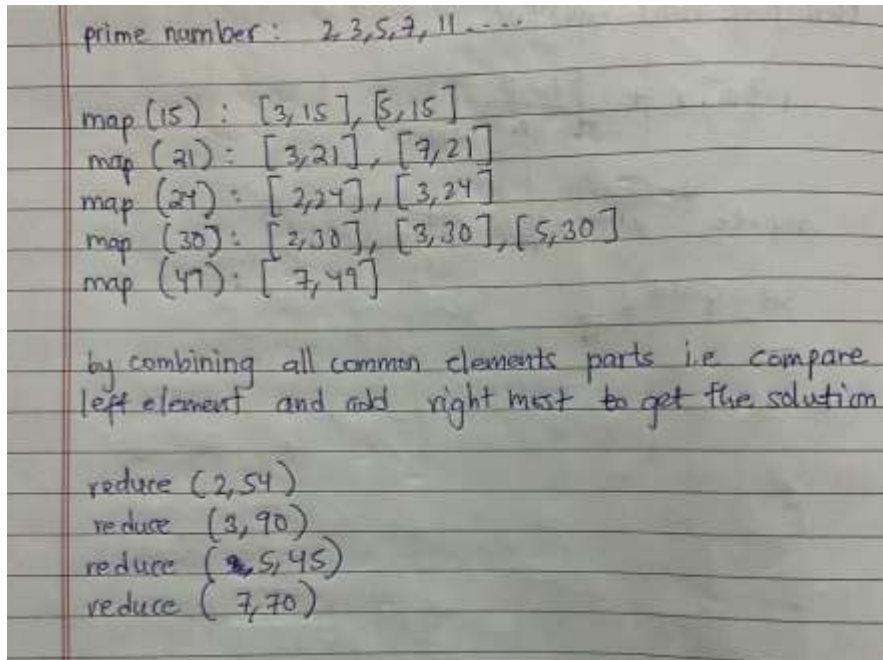 prime number: 2, 3, 5, 7, 11 ....
map (15) : [3, 15], [5, 15]
map (21) : [3, 21], [7, 21]
map (24) : [2, 24], [3, 24]
map (30) : [2, 30], [3, 30], [5, 30]
map (49) : [7, 49]
by combining all common elements parts i.e compare
left element and add right most to get the solution
reduce (2, 54)
reduce (3, 90)
reduce (5, 45)
reduce (7, 70)